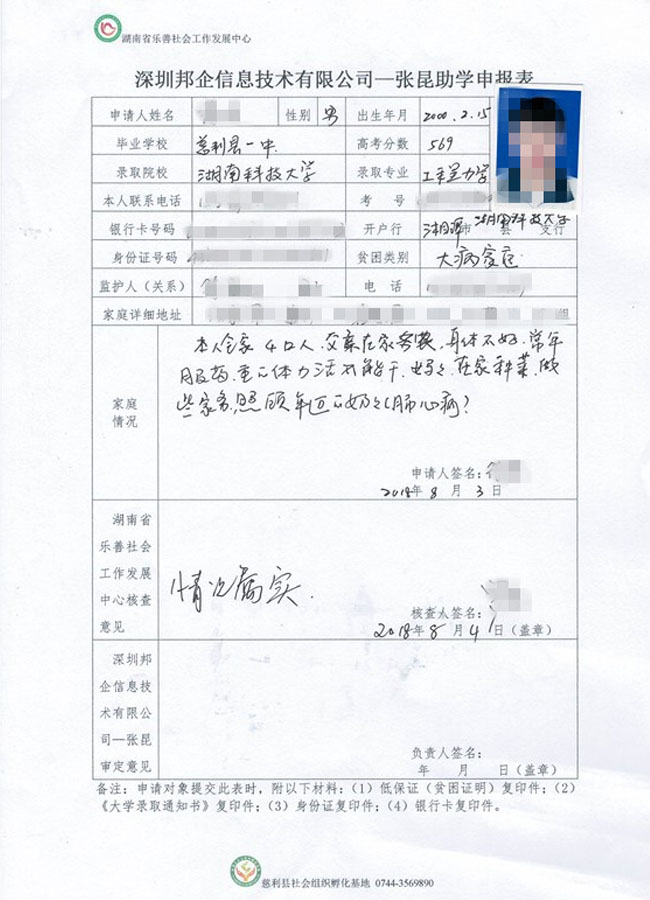 湖南省乐善社会工作发展中心
深圳邦企信息技术有限公司—张昆助学申报表
申请人姓名 性别 男 出生年月 2000.2.15
毕业学校 慈利县一中 高考分数 569
录取院校 湖南科技大学 录取专业 工程力学
本人联系电话 考 号
银行卡号码 开户行 湘潭市 湖南科技大学 县 支行
身份证号码 贫困类别 大病家庭
监护人（关系） 电 话
家庭详细地址 组
家庭
情况
本人全家4口人,父亲在家务农,身体不好,常年
服药,重体力活不能干,妈妈在家种菜,做
些家务,照顾年迈的奶奶(肺心病)
申请人签名:
2018年 8 月 3 日
湖南省
乐善社会
工作发展
中心核查
意见
情况属实.
核查人签名:
2018年 8 月 4 日（盖章）
深圳邦
企信息技
术有限公
司—张昆
审定意见
负责人签名:
年 月 日（盖章）
备注: 申请对象提交此表时, 附以下材料:（1）低保证（贫困证明）复印件;（2）
《大学录取通知书》复印件;（3）身份证复印件;（4）银行卡复印件。
慈利县社会组织孵化基地 0744-3569890